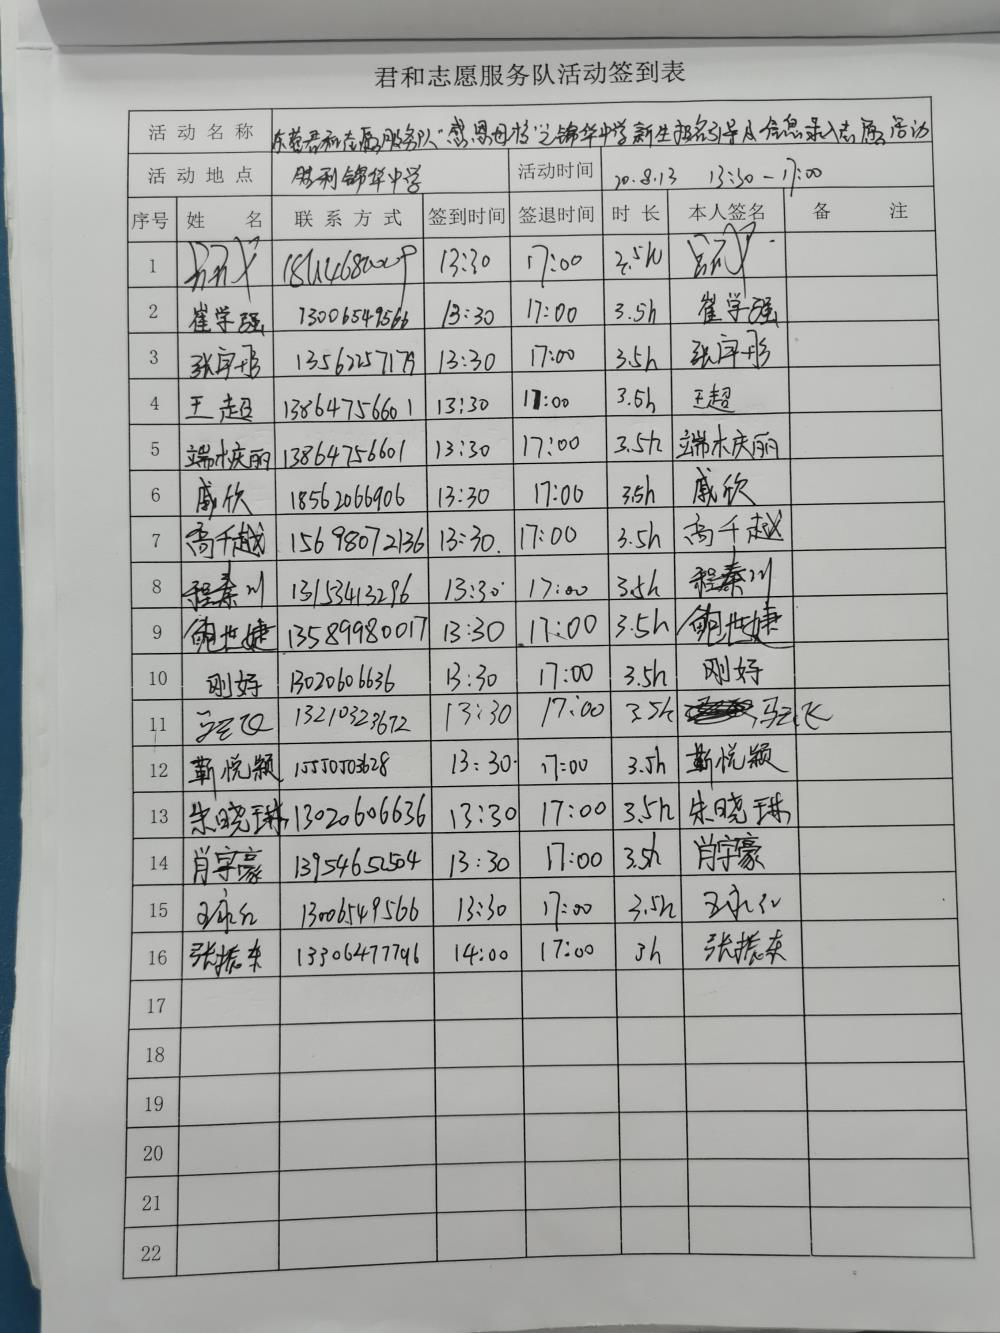 君和志愿服务队活动签到表
活动名称 东营君和志愿服务队“感恩母校”之锦华中学新生报名引导及信息录入志愿活动
活动地点 胜利锦华中学 活动时间 20.8.13 13:30-17:00
序号 姓名 联系方式 签到时间 签退时间 时长 本人签名 备注
1 13:30 17:00 3.5h
2 崔学强 13006549566 13:30 17:00 3.5h 崔学强
3 张宇彤 13562257179 13:30 17:00 3.5h 张宇彤
4 王超 13864756601 13:30 17:00 3.5h 王超
5 端木庆丽 13864756601 13:30 17:00 3.5h 端木庆丽
6 戚欣 18562066906 13:30 17:00 3.5h 戚欣
7 高千越 15698072136 13:30. 17:00 3.5h 高千越
8 程秦川 13153413296 13:30 17:00 3.5h 程秦川
9 鲍世婕 13589980017 13:30 17:00 3.5h 鲍世婕
10 刚好 13020606636 13:30 17:00 3.5h 刚好
11 马云飞 13210323672 13:30 17:00 3.5h 马云飞
12 靳悦颖 15550503628 13:30 17:00 3.5h 靳悦颖
13 朱晓琳 13020606636 13:30 17:00 3.5h 朱晓琳
14 肖宇豪 13954652504 13:30 17:00 3.5h 肖宇豪
15 王永红 13006549566 13:30 17:00 3.5h 王永红
16 张振东 13306477796 14:00 17:00 3h 张振东
17
18
19
20
21
22